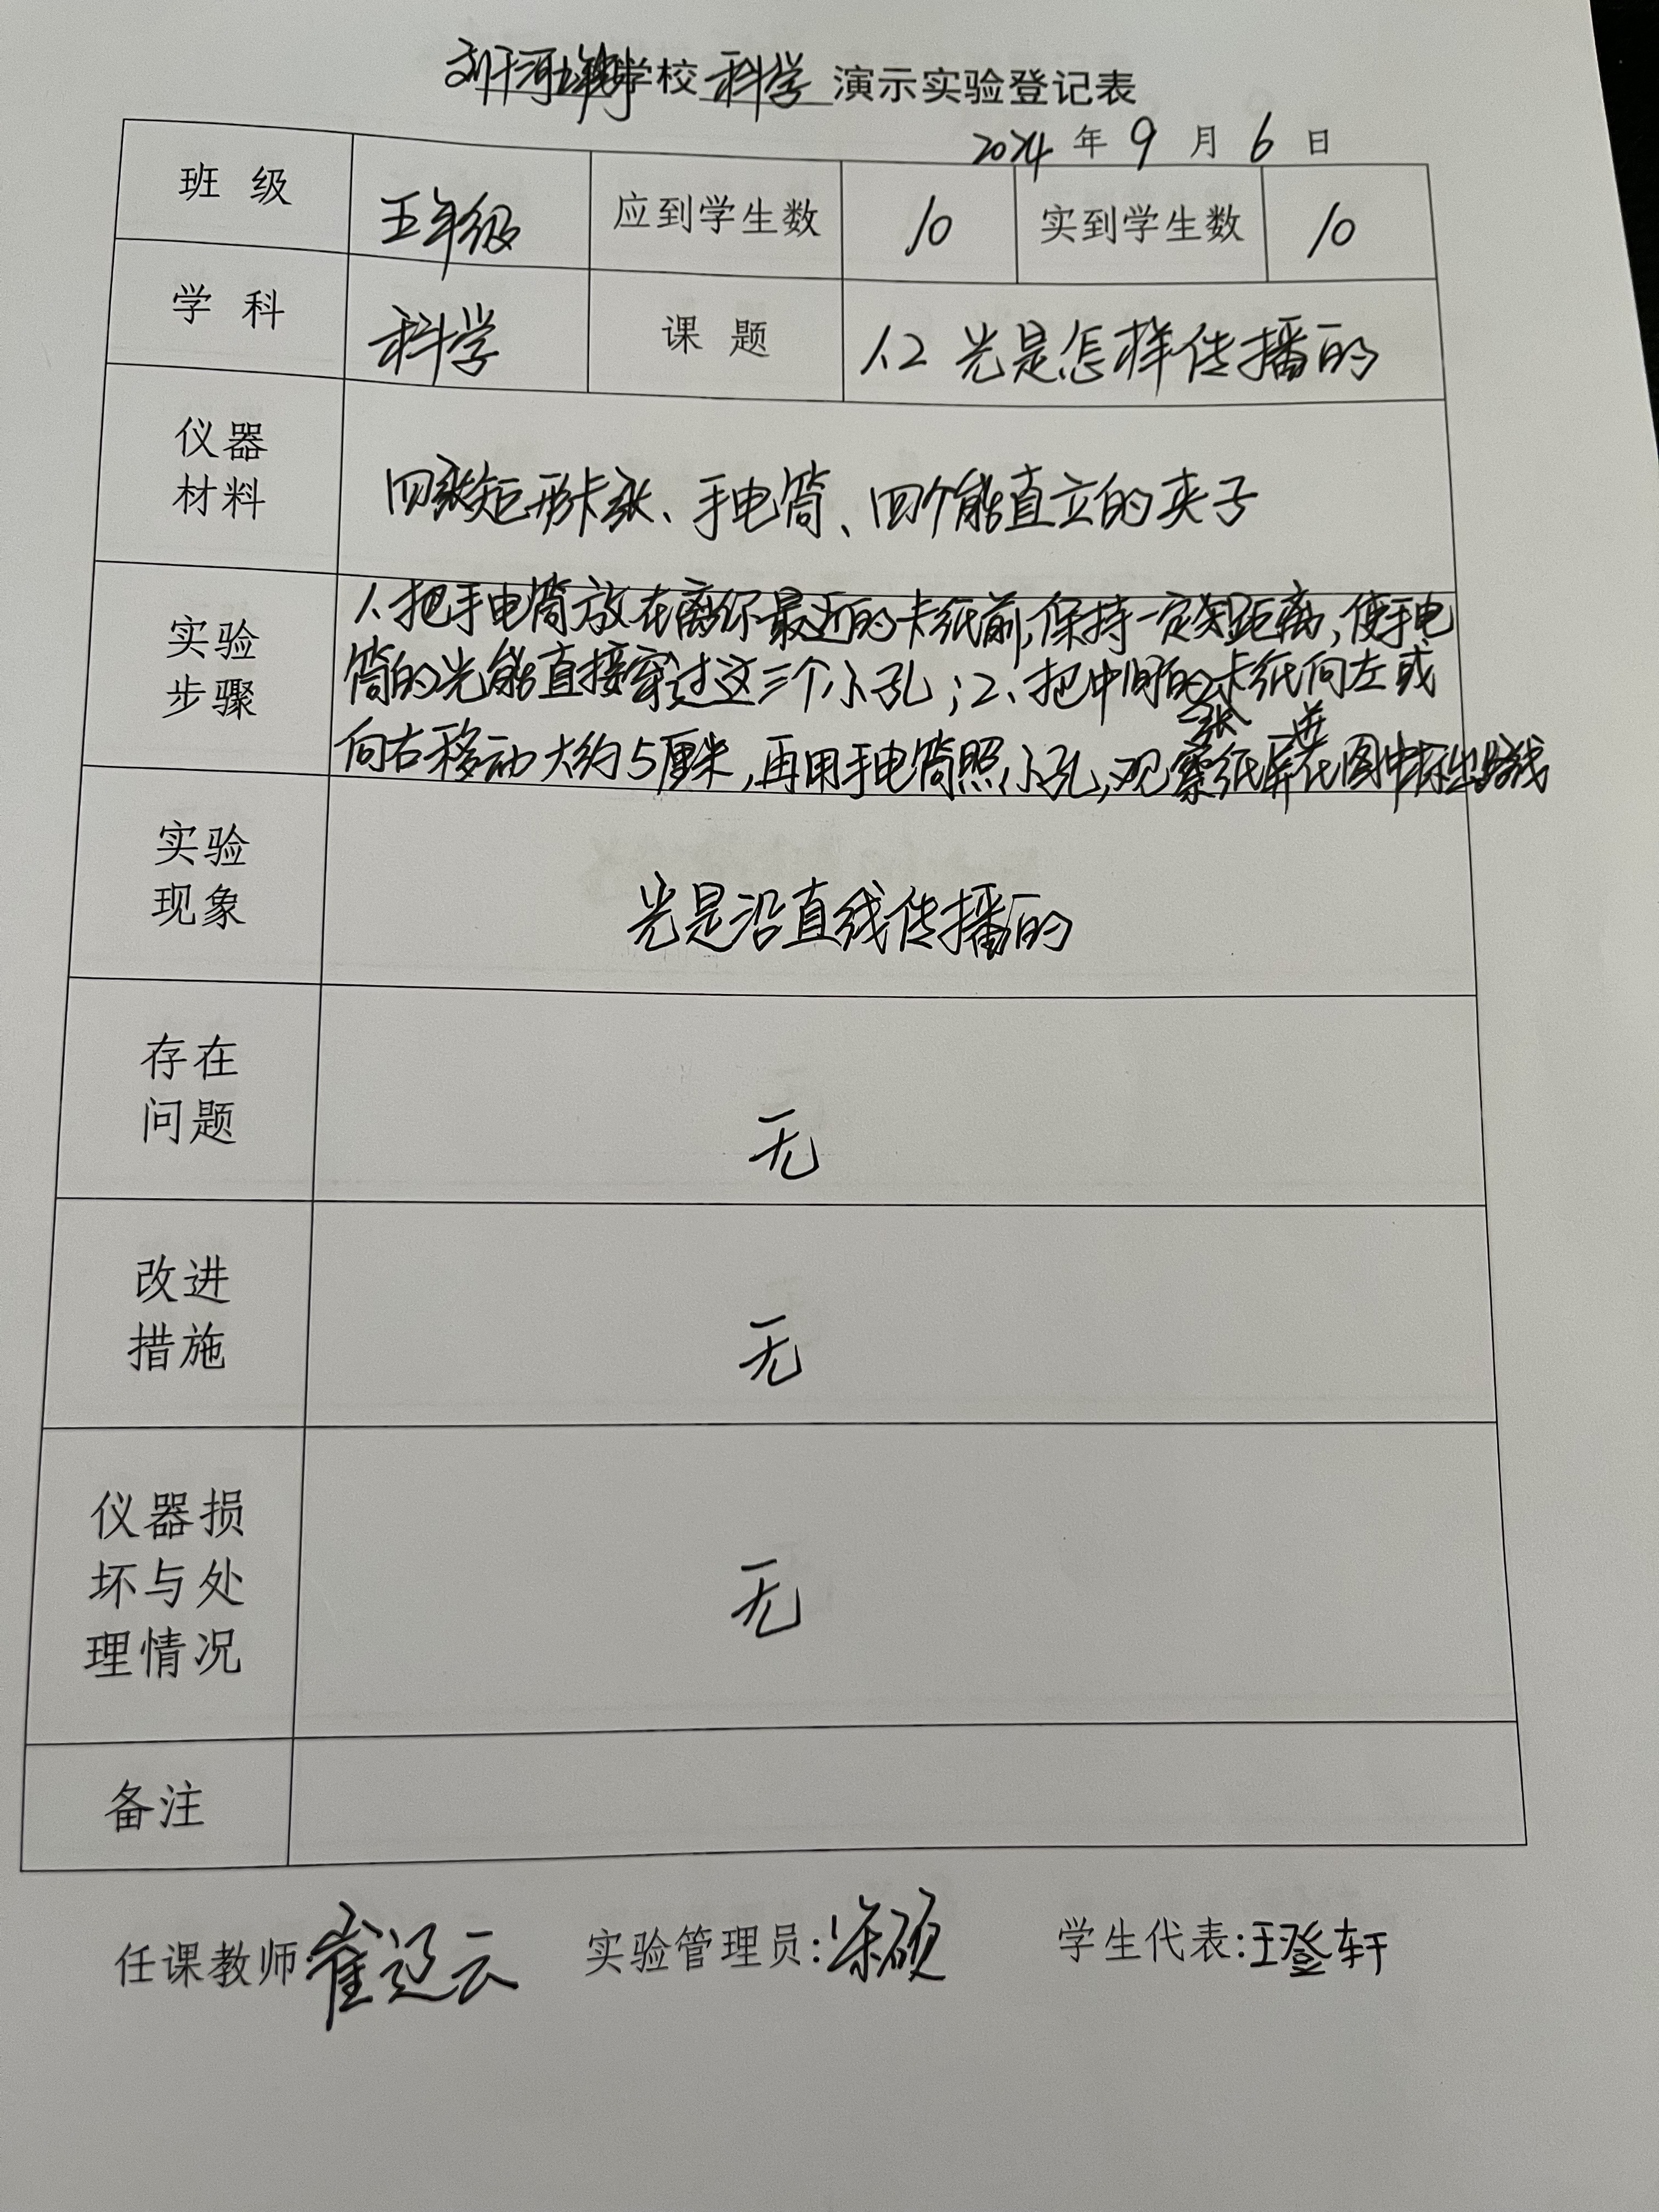 学校 科学 演示实验登记表
2024 年 9 月 6 日
班 级 五年级 应到学生数 10 实到学生数 10
学 科 科学 课 题 1.2 光是怎样传播的
仪器
材料
四张矩形卡纸、手电筒、四个能直立的夹子
实验
步骤
1、把手电筒放在离你最近的卡纸前,保持一定距离,使手电
筒的光能直接穿过这三个小孔;2、把中间的卡纸向左或
向右移动大约5厘米,再用手电筒照小孔,观察纸屏在图中标出路线
实验
现象
光是沿直线传播的
存在
问题
无
改进
措施
无
仪器损
坏与处
理情况
无
备注
任课教师: 崔 云 实验管理员: 硕 学生代表:王登轩